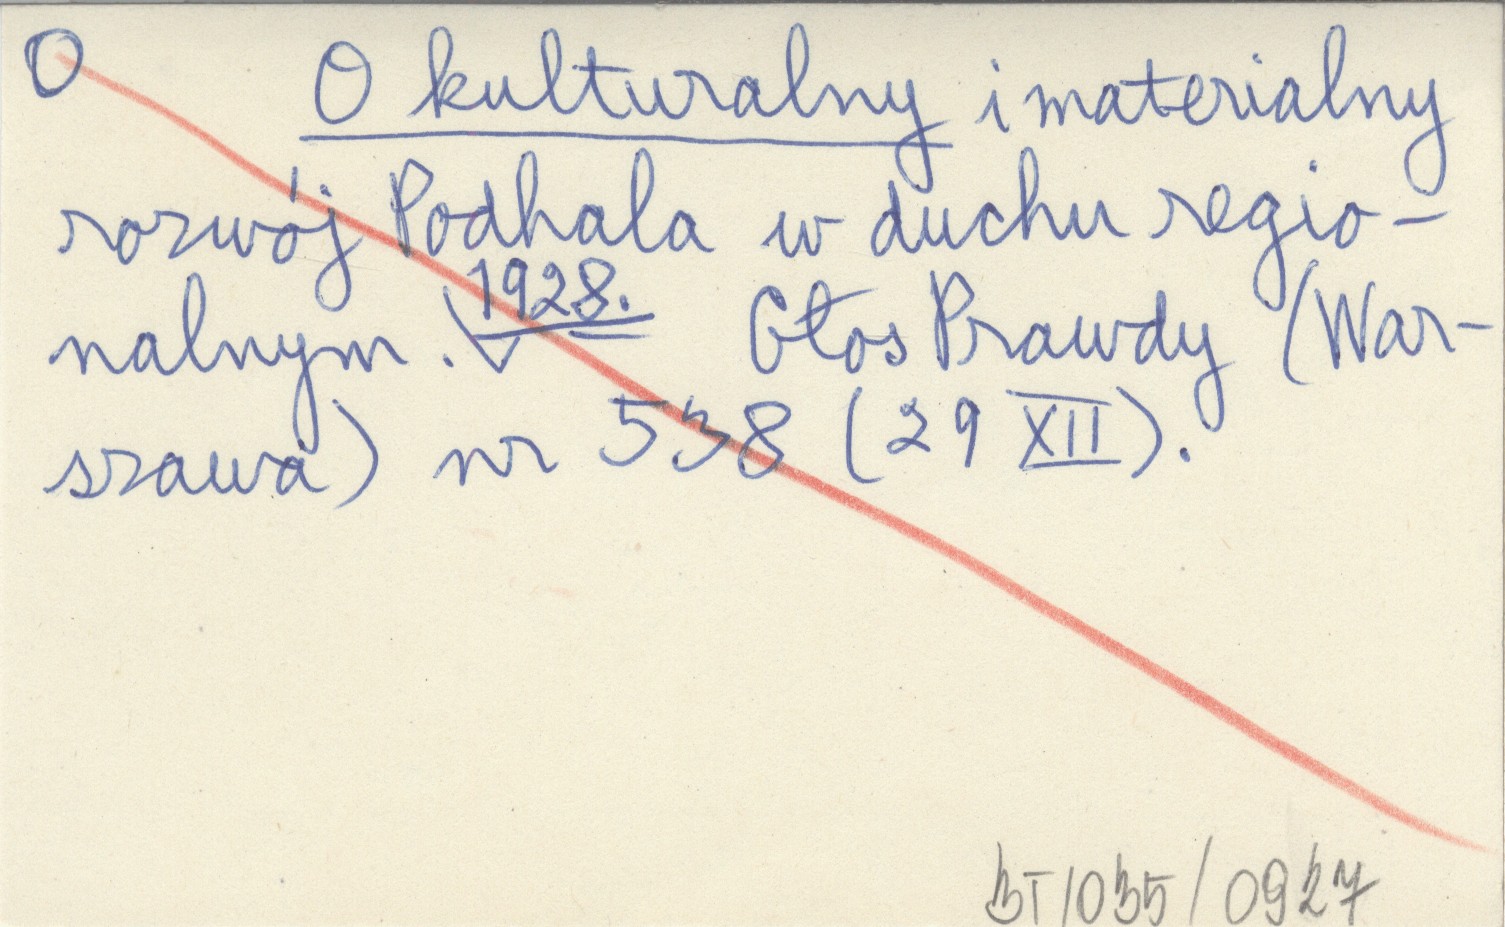 O
O kulturalny i materialny
rozwój Podhala w duchu regio-
nalnym. 1928. Głos Prawdy (War-
szawa) nr 538 (29 XII).
BT/035/0927